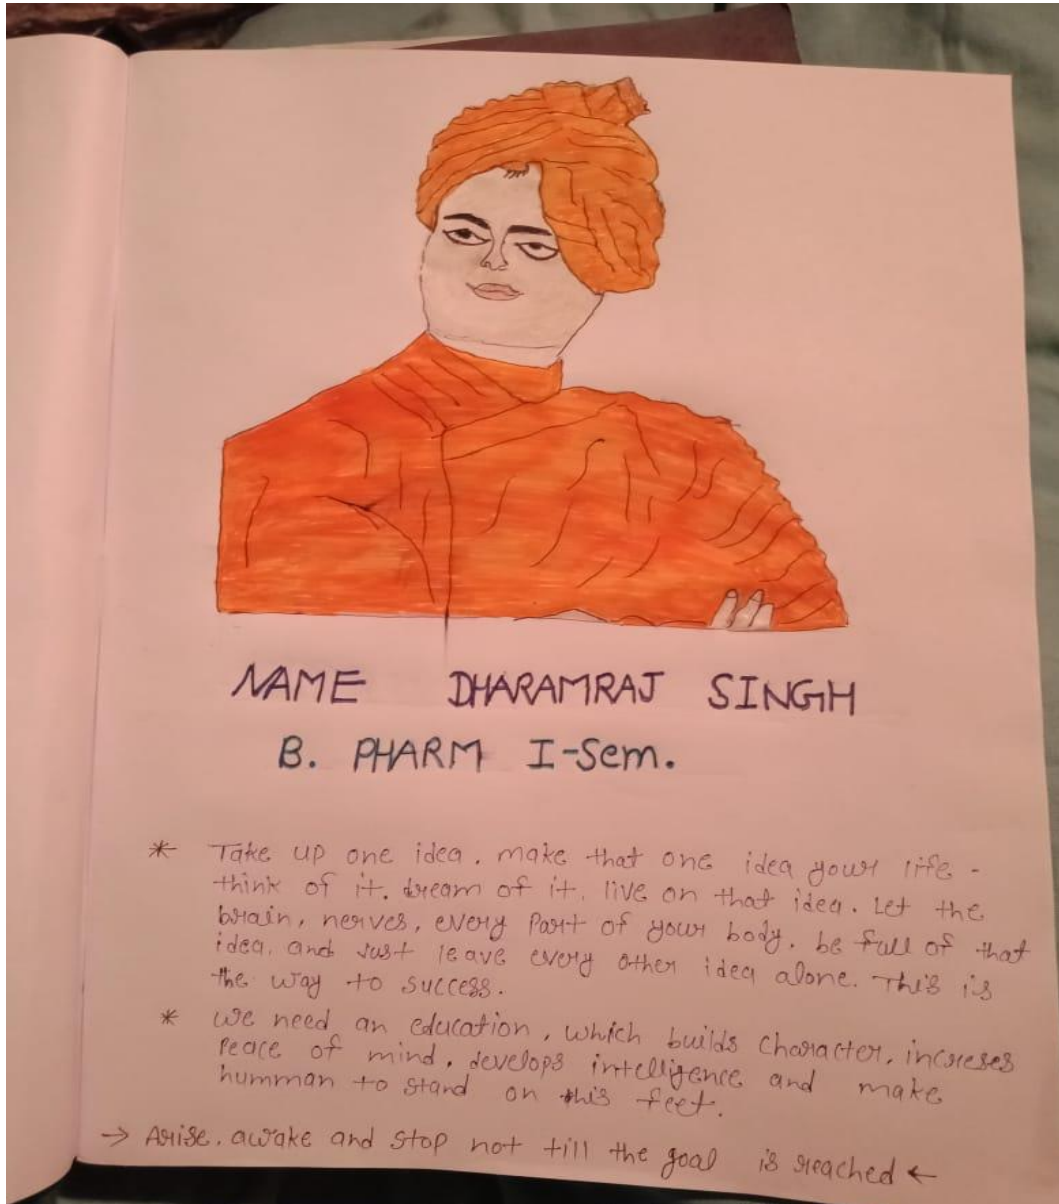 NAME DHARAMRAJ SINGH
B. PHARM I-Sem.
* Take up one idea. make that one idea your life -
think of it. dream of it. live on that idea. Let the
brain, nerves, every Part of your body. be full of that
idea. and Just leave every other idea alone. This is
the way to success.
* We need an education, which builds character, increses
Peace of mind. develops intelligence and make
humman to stand on this feet.
→ Arise. awake and stop not till the goal is reached ←